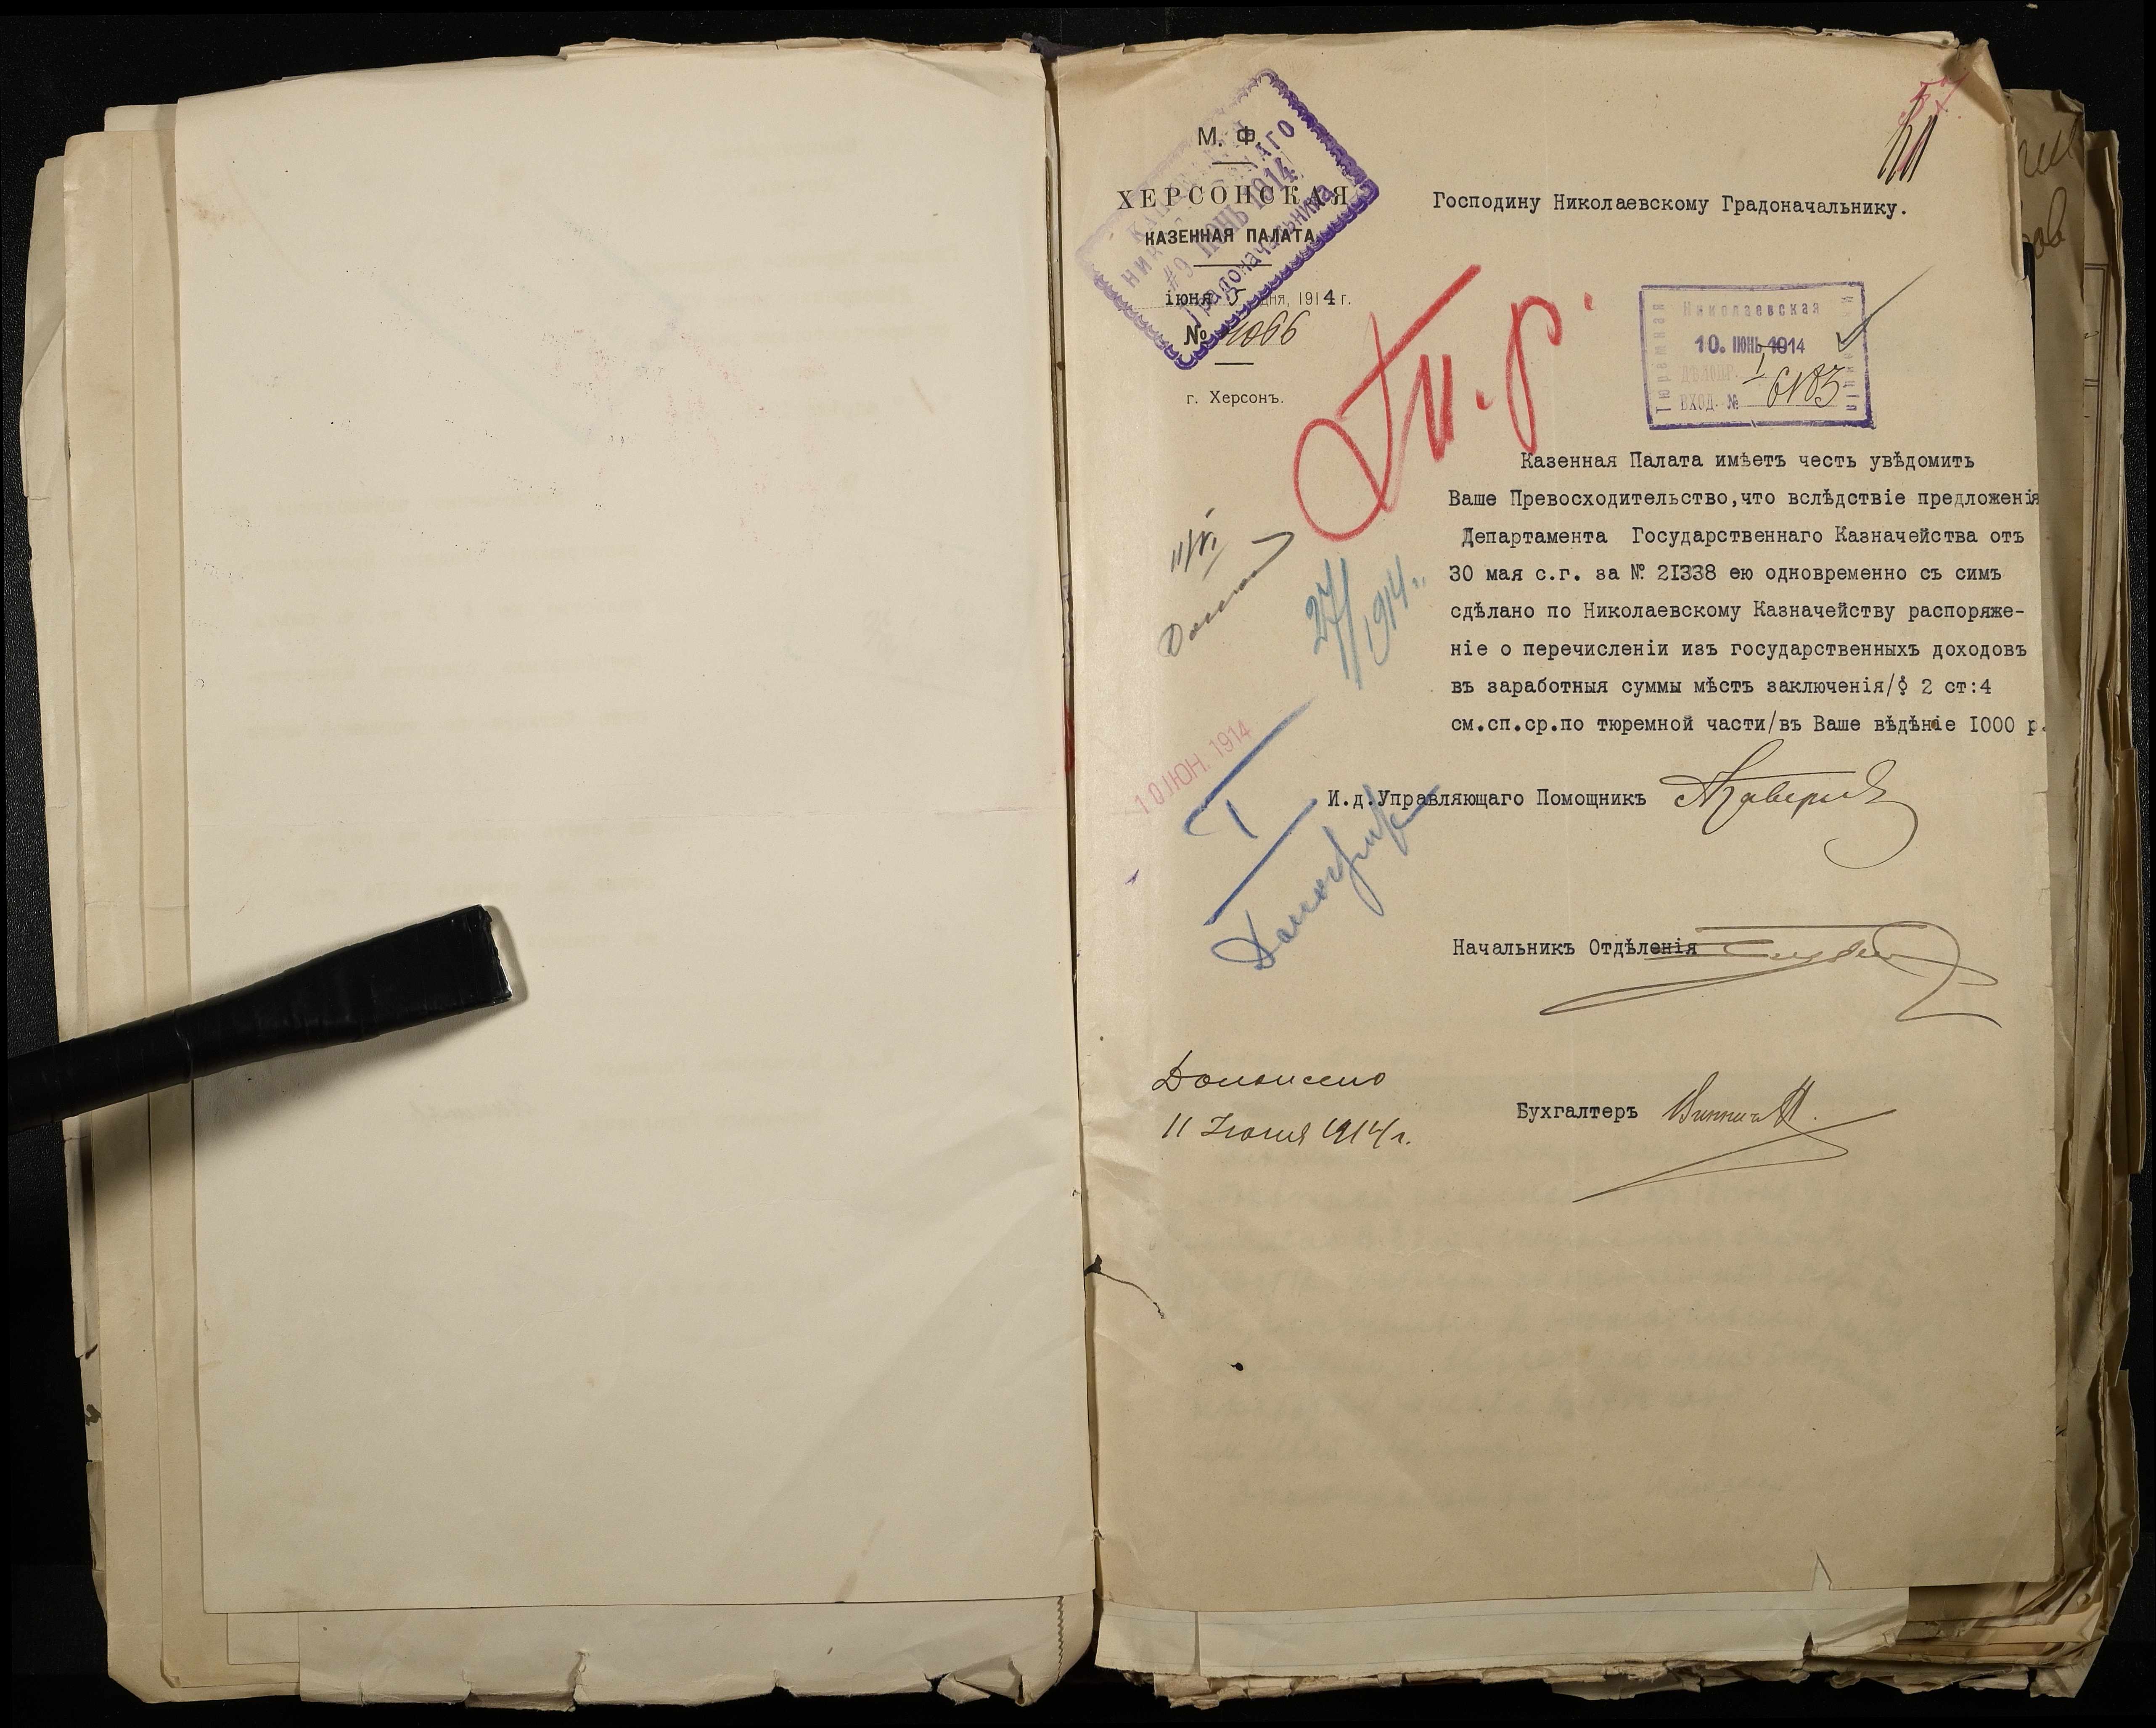 М. Ф.
ХЕРСОНСКАЯ
КАЗЕННАЯ ПАЛАТА
іюня 5 дня, 1914 г.
№ 4066
г. Херсонъ.
9 ІЮНЬ 1914
Градоначальника
Господину Николаевскому Градоначальнику.
Николаевская
Тюремная
10. ІЮНЬ 1914
ДѢЛОПР. I
ВХОД. № 6183
Т.р.
Казенная Палата имѣетъ честь увѣдомить
Ваше Превосходительство,что вслѣдствіе предложенія
Департамента Государственнаго Казначейства отъ
30 мая с.г. за № 21338 ею одновременно съ симъ
сдѣлано по Николаевскому Казначейству распоряже-
ніе о перечисленіи изъ государственныхъ доходовъ
въ заработныя суммы мѣстъ заключенія/§ 2 ст:4
см.сп.ср.по тюремной части/въ Ваше вѣдѣніе 1000 р.
11/VI
27/1914 г.
10 ІЮН. 1914
I
И.д.Управляющаго Помощникъ
Начальникъ Отдѣленія
Бухгалтеръ
Доложено
11 Іюня 1914 г.